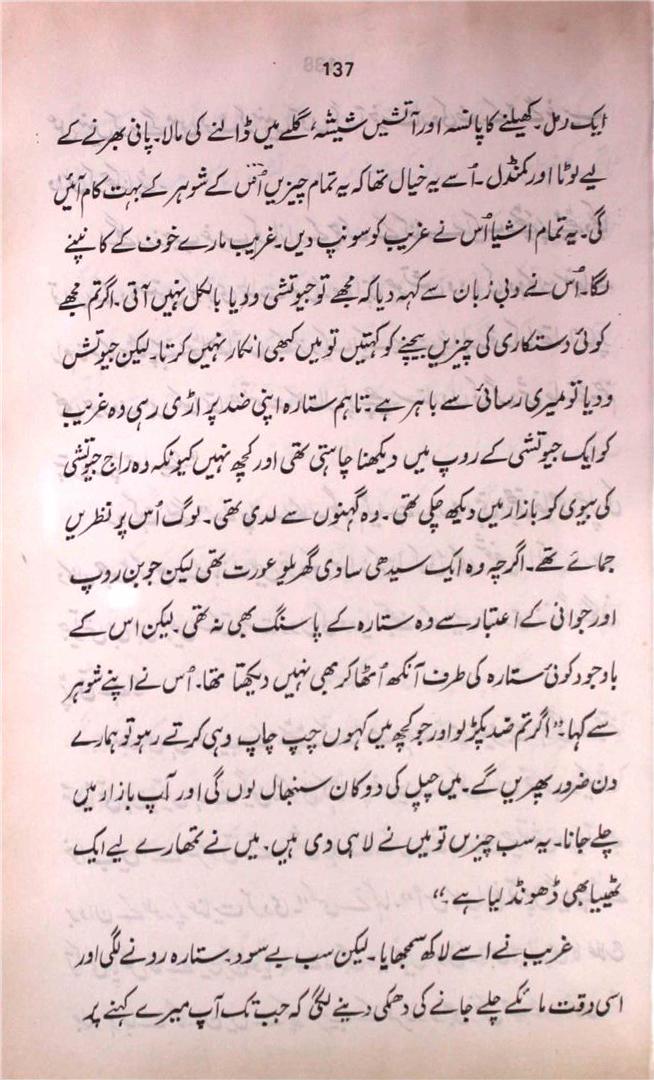 137
ایک رمل۔ کھیلنے کا پانسہ اور آتشیں شیشہ، گلے میں ڈالنے کی مالا۔ پانی بھرنے کے
لیے لوٹا اور کمنڈل۔ اُسے یہ خیال تھا کہ یہ تمام چیزیں اُس کے شوہر کے بہت کام آئیں
گی۔ یہ تمام اشیا اُس نے غریب کو سونپ دیں۔ غریب مارے خوف کے کانپنے
لگا۔ اُس نے دبی زبان سے کہہ دیا کہ مجھے تو جیوتشی ودیا بالکل نہیں آتی۔ اگر تم مجھے
کوئی دستکاری کی چیزیں بیچنے کو کہتیں تو میں کبھی انکار نہیں کرتا۔ لیکن جیوتش
ودیا تو میری رسائی سے باہر ہے۔ تاہم ستارہ اپنی ضد پر اڑی رہی وہ غریب
کو ایک جیوتشی کے روپ میں دیکھنا چاہتی تھی اور کچھ نہیں کیونکہ وہ راج جیوتشی
کی بیوی کو بازار میں دیکھ چکی تھی۔ وہ گہنوں سے لدی تھی۔ لوگ اُس پر نظریں
جمائے تھے۔ اگرچہ وہ ایک سیدھی سادی گھریلو عورت تھی لیکن جوبن روپ
اور جوانی کے اعتبار سے وہ ستارہ کے پاسنگ بھی نہ تھی۔ لیکن اس کے
باوجود کوئی ستارہ کی طرف آنکھ اُٹھا کر بھی نہیں دیکھتا تھا۔ اُس نے اپنے شوہر
سے کہا۔ "اگر تم ضد پکڑ لو اور جو کچھ میں کہوں چپ چاپ وہی کرتے رہو تو ہمارے
دن ضرور پھریں گے۔ میں چپل کی دوکان سنبھال لوں گی اور آپ بازار میں
چلے جانا۔ یہ سب چیزیں تو میں نے لا ہی دی ہیں۔ میں نے تمھارے لیے ایک
ٹھییا بھی ڈھونڈ لیا ہے۔"
غریب نے اسے لاکھ سمجھایا۔ لیکن سب بے سود۔ ستارہ رونے لگی اور
اسی وقت مائکے چلے جانے کی دھمکی دینے لگی کہ جب تک آپ میرے کہنے پر